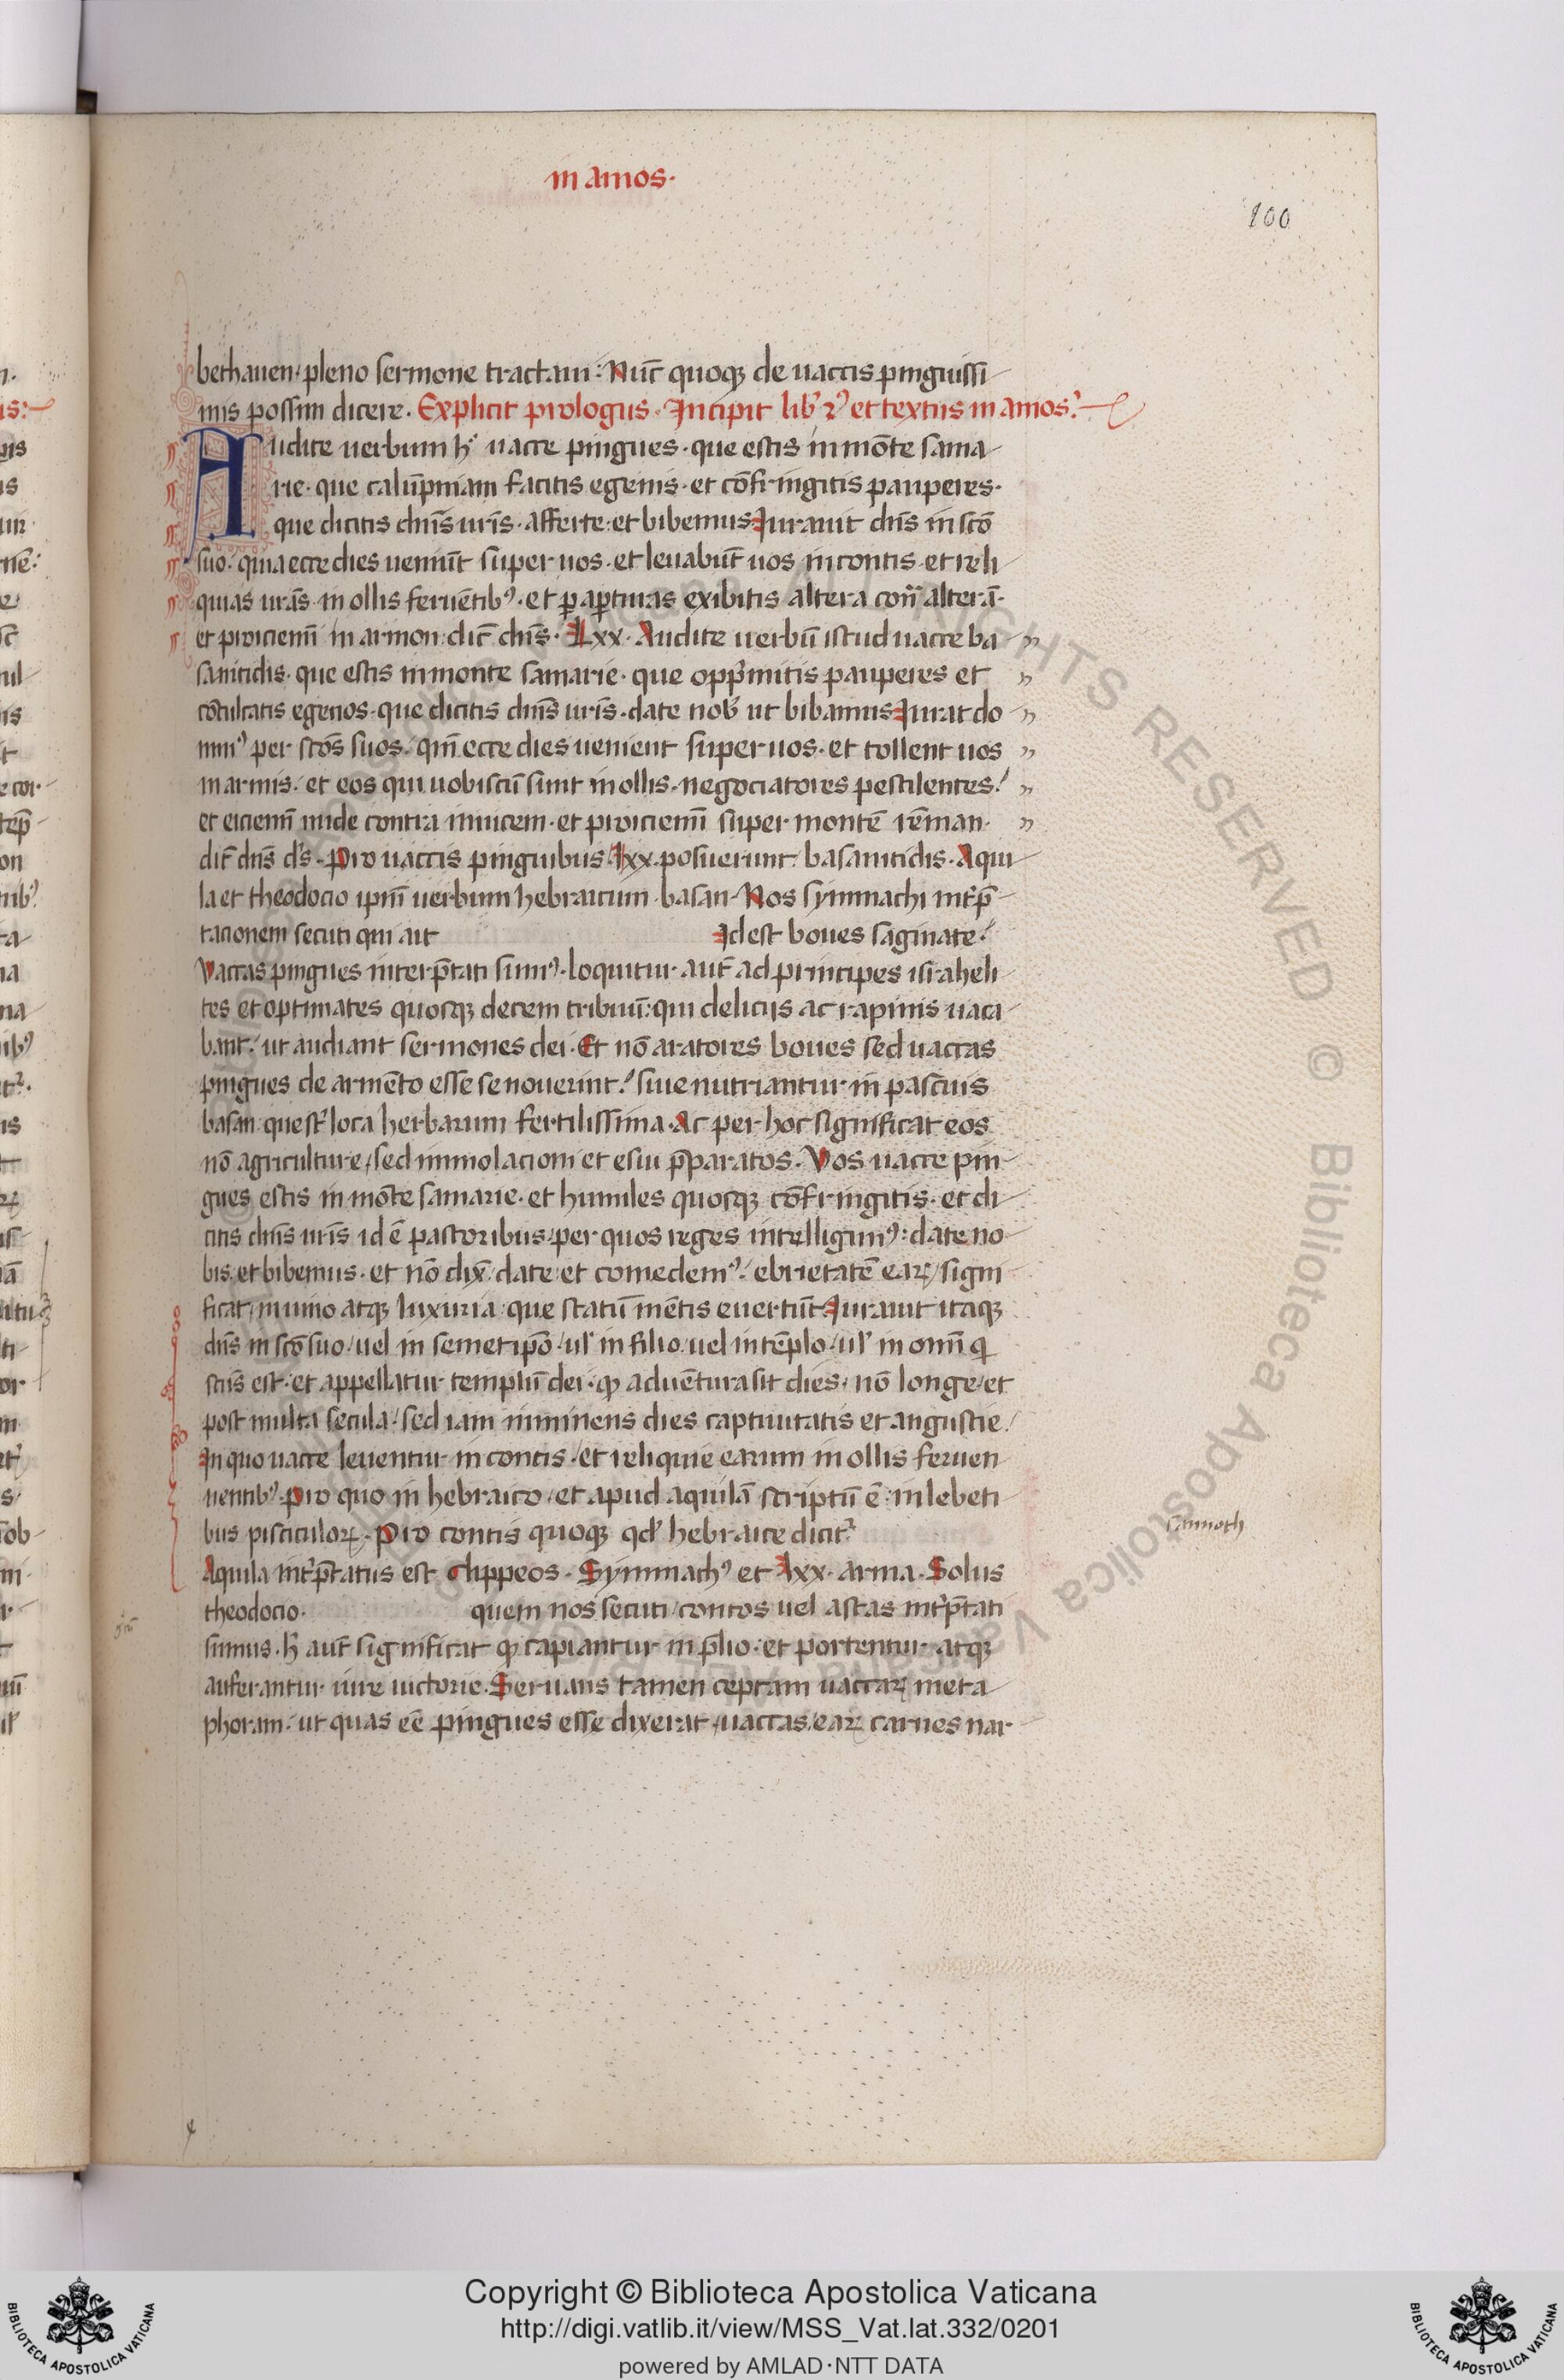 in amos·
100
bethauen / pleno sermone tractaui : Nūc quoqꝫ de uaccis pinguissi
mis possim dicere . Explicit prologus · Incipit lib' 2ꝰ et textus in amos :
Audite uerbum h' uacce pingues · que estis in mōte sama
rie · que calūpniam facitis egenis · et cōfringitis pauperes ·
que dicitis dnīs urīs · afferte · et bibemus Iurauit dn̄s in scō
suo · quia ecce dies ueniūt super uos · et leuabūt uos in contis · et reli
quias urās · in ollis feruētibꝰ · et ꝑ aꝑturas exibitis altera con̄ alterā ·
et proiciemī in armon · dic̄ dn̄s · Lxx · Audite uerbū istud uacce ba „
sanitidis · que estis in monte samarie · que opp̄mitis pauperes et „
cōculcatis egenos · que dicitis dnīs urīs · date nob' ut bibamus Iurat do „
minꝰ per scōs suos · qm̄ ecce dies uenient super uos · et tollent uos „
in armis · et eos qui uobiscū sunt in ollis · negociatores pestilentes / „
et eiciemī nude contra inuicem · et proiciemī super montē rēman · „
dic̄ dn̄s d's · Pro uaccis pinguibus Lxx · posuerunt basanitidis · Aqui
la et theodocio ipm̄ uerbum hebraicum basan · Nos symmachi int'p̄
tacionem secuti qui ait Id est boues saginate /
Vaccas pingues interp̄tati sumꝰ · loquitur aut̄ ad principes israheli
tes et optimates quosqꝫ decem tribuū : qui deliciis ac rapinis uaca
bant / ut audiant sermones dei · Et nō aratores boues sed uaccas
pingues de armēto esse se nouerint / siue nutriantur in pascuis
basan que st' loca herbarum fertilissima · Ac per hoc significat eos
nō agriculture / sed immolacioni et esui p̄paratos · Vos uacce pin
gues estis in mōte samarie · et humiles quosqꝫ cōfringitis · et di
citis dnīs urīs id ē pastoribus / per quos reges intelligimꝰ : date no
bis · et bibemus · et nō dix̄ / date et comedemꝰ / ebrietatē eaꝝ / signi
ficat / in uino atqꝫ luxuria / que statū mētis euertūt Iurauit itaqꝫ
dn̄s in scō suo / uel in semetipō / ul' in filio / uel in tēplo / ul' in omī q̄
scūs est · et appellatur templū dei · ꝙ aduētura sit dies / nō longe / et
post multa secula / sed iam imminens dies captiuitatis et angustie /
In quo uacce leuentur in contis / et reliquie earum in ollis feruen
uentibꝰ · Pro quo in hebraico / et apud aquilā scriptū ē · in lebeti
bus pisciculoꝝ · Pro contis quoqꝫ qd' hebraice dicit'
sannoth
Aquila int'p̄tatus est Clippeos · Symmachꝰ et Lxx · arma · Solus
theodocio · quem nos secuti / contos uel astas int'p̄tati
sumus · h̄ aut̄ significat ꝙ capiantur in p̄lio · et portentur atqꝫ
auferantur iure uictorie · Seruans tamen ceptam uaccaꝝ meta
phoram / ut quas eē pingues esse dixerat / uaccas / eaꝝ carnes nar
Copyright © Biblioteca Apostolica Vaticana
http://digi.vatlib.it/view/MSS_Vat.lat.332/0201
powered by AMLAD·NTT DATA